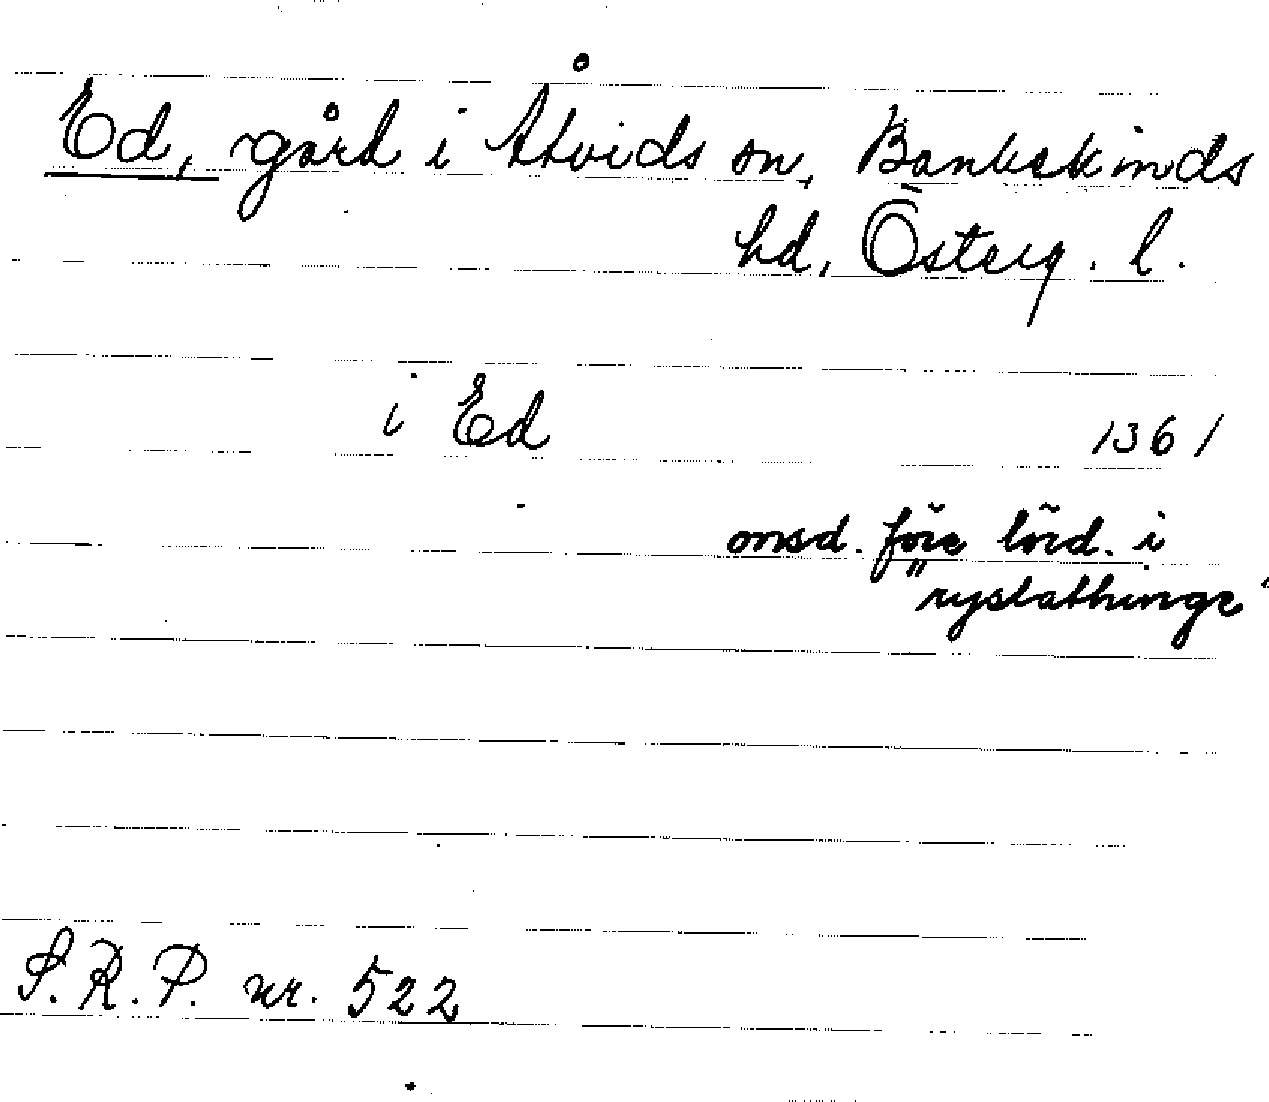 Ed, gård i Åtvids sn, Bankekinds
hd, Österg. l.
i Ed 1361
onsd. före lörd. i
"ryslathinge"
S.R.P. nr. 522